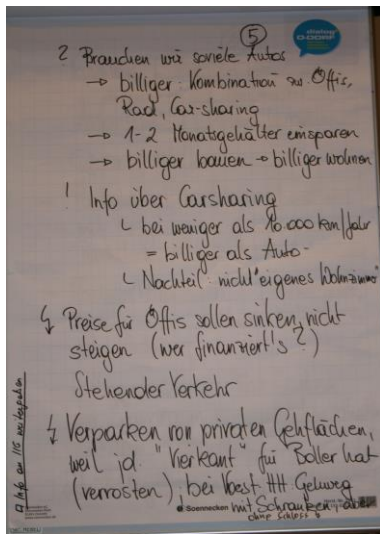 5
dialog
O-DORF
? Brauchen wir soviele Autos
→ billiger: Kombination zw. Öffis,
Rad, Car-sharing
→ 1-2 Monatsgehälter einsparen
→ billiger bauen → billiger wohnen
! Info über Carsharing
↳ bei weniger als 10.000 km/Jahr
= billiger als Auto
↳ Nachteil: nicht "eigenes Wohnzimmer"
↯ Preise für Öffis sollen sinken, nicht
steigen (wer finanziert's?)
Stehender Verkehr
↯ Verparken von privaten Gehflächen,
weil jd. "Vierkant" für Poller hat
(verrosten), bei Voest ## Gehweg
mit Schranken, aber
ohne Schloss
Soennecken
Info an IIG weitergeben